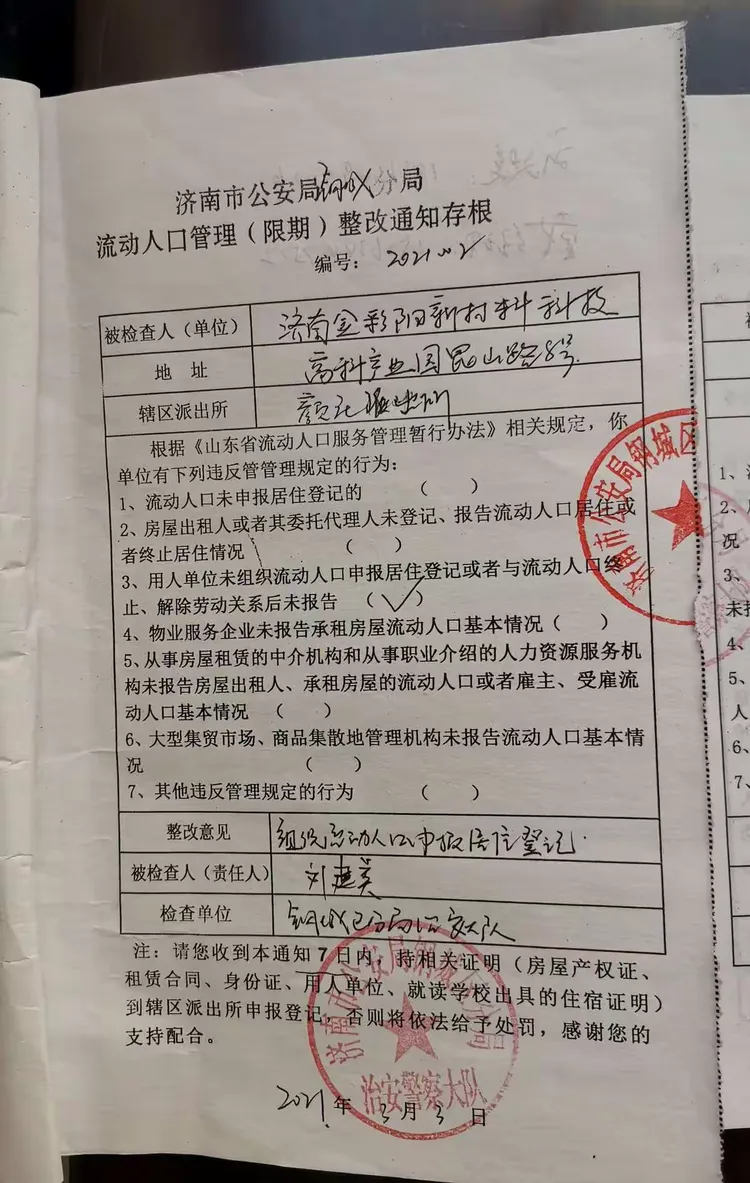 济南市公安局钢城分局
流动人口管理（限期）整改通知存根
编号： 2021002
被检查人（单位） 济南金彩阳新材料科技
地 址 高科产业园昆山路8号
辖区派出所 颜庄派出所
根据《山东省流动人口服务管理暂行办法》相关规定，你
单位有下列违反管管理规定的行为：
1、流动人口未申报居住登记的 （ ）
2、房屋出租人或者其委托代理人未登记、报告流动人口居住或
者终止居住情况 （ ）
3、用人单位未组织流动人口申报居住登记或者与流动人口终
止、解除劳动关系后未报告 （✓）
4、物业服务企业未报告承租房屋流动人口基本情况（ ）
5、从事房屋租赁的中介机构和从事职业介绍的人力资源服务机
构未报告房屋出租人、承租房屋的流动人口或者雇主、受雇流
动人口基本情况 （ ）
6、大型集贸市场、商品集散地管理机构未报告流动人口基本情
况 （ ）
7、其他违反管理规定的行为 （ ）
整改意见 组织流动人口申报居住登记.
被检查人（责任人） 刘建英
检查单位 钢城区分局治安大队
注：请您收到本通知7日内，持相关证明（房屋产权证、
租赁合同、身份证、用人单位、就读学校出具的住宿证明）
到辖区派出所申报登记，否则将依法给予处罚，感谢您的
支持配合。
2021.年 3月 3 日
济南市公安局钢城区
济南市公安局钢城区分局
治安警察大队